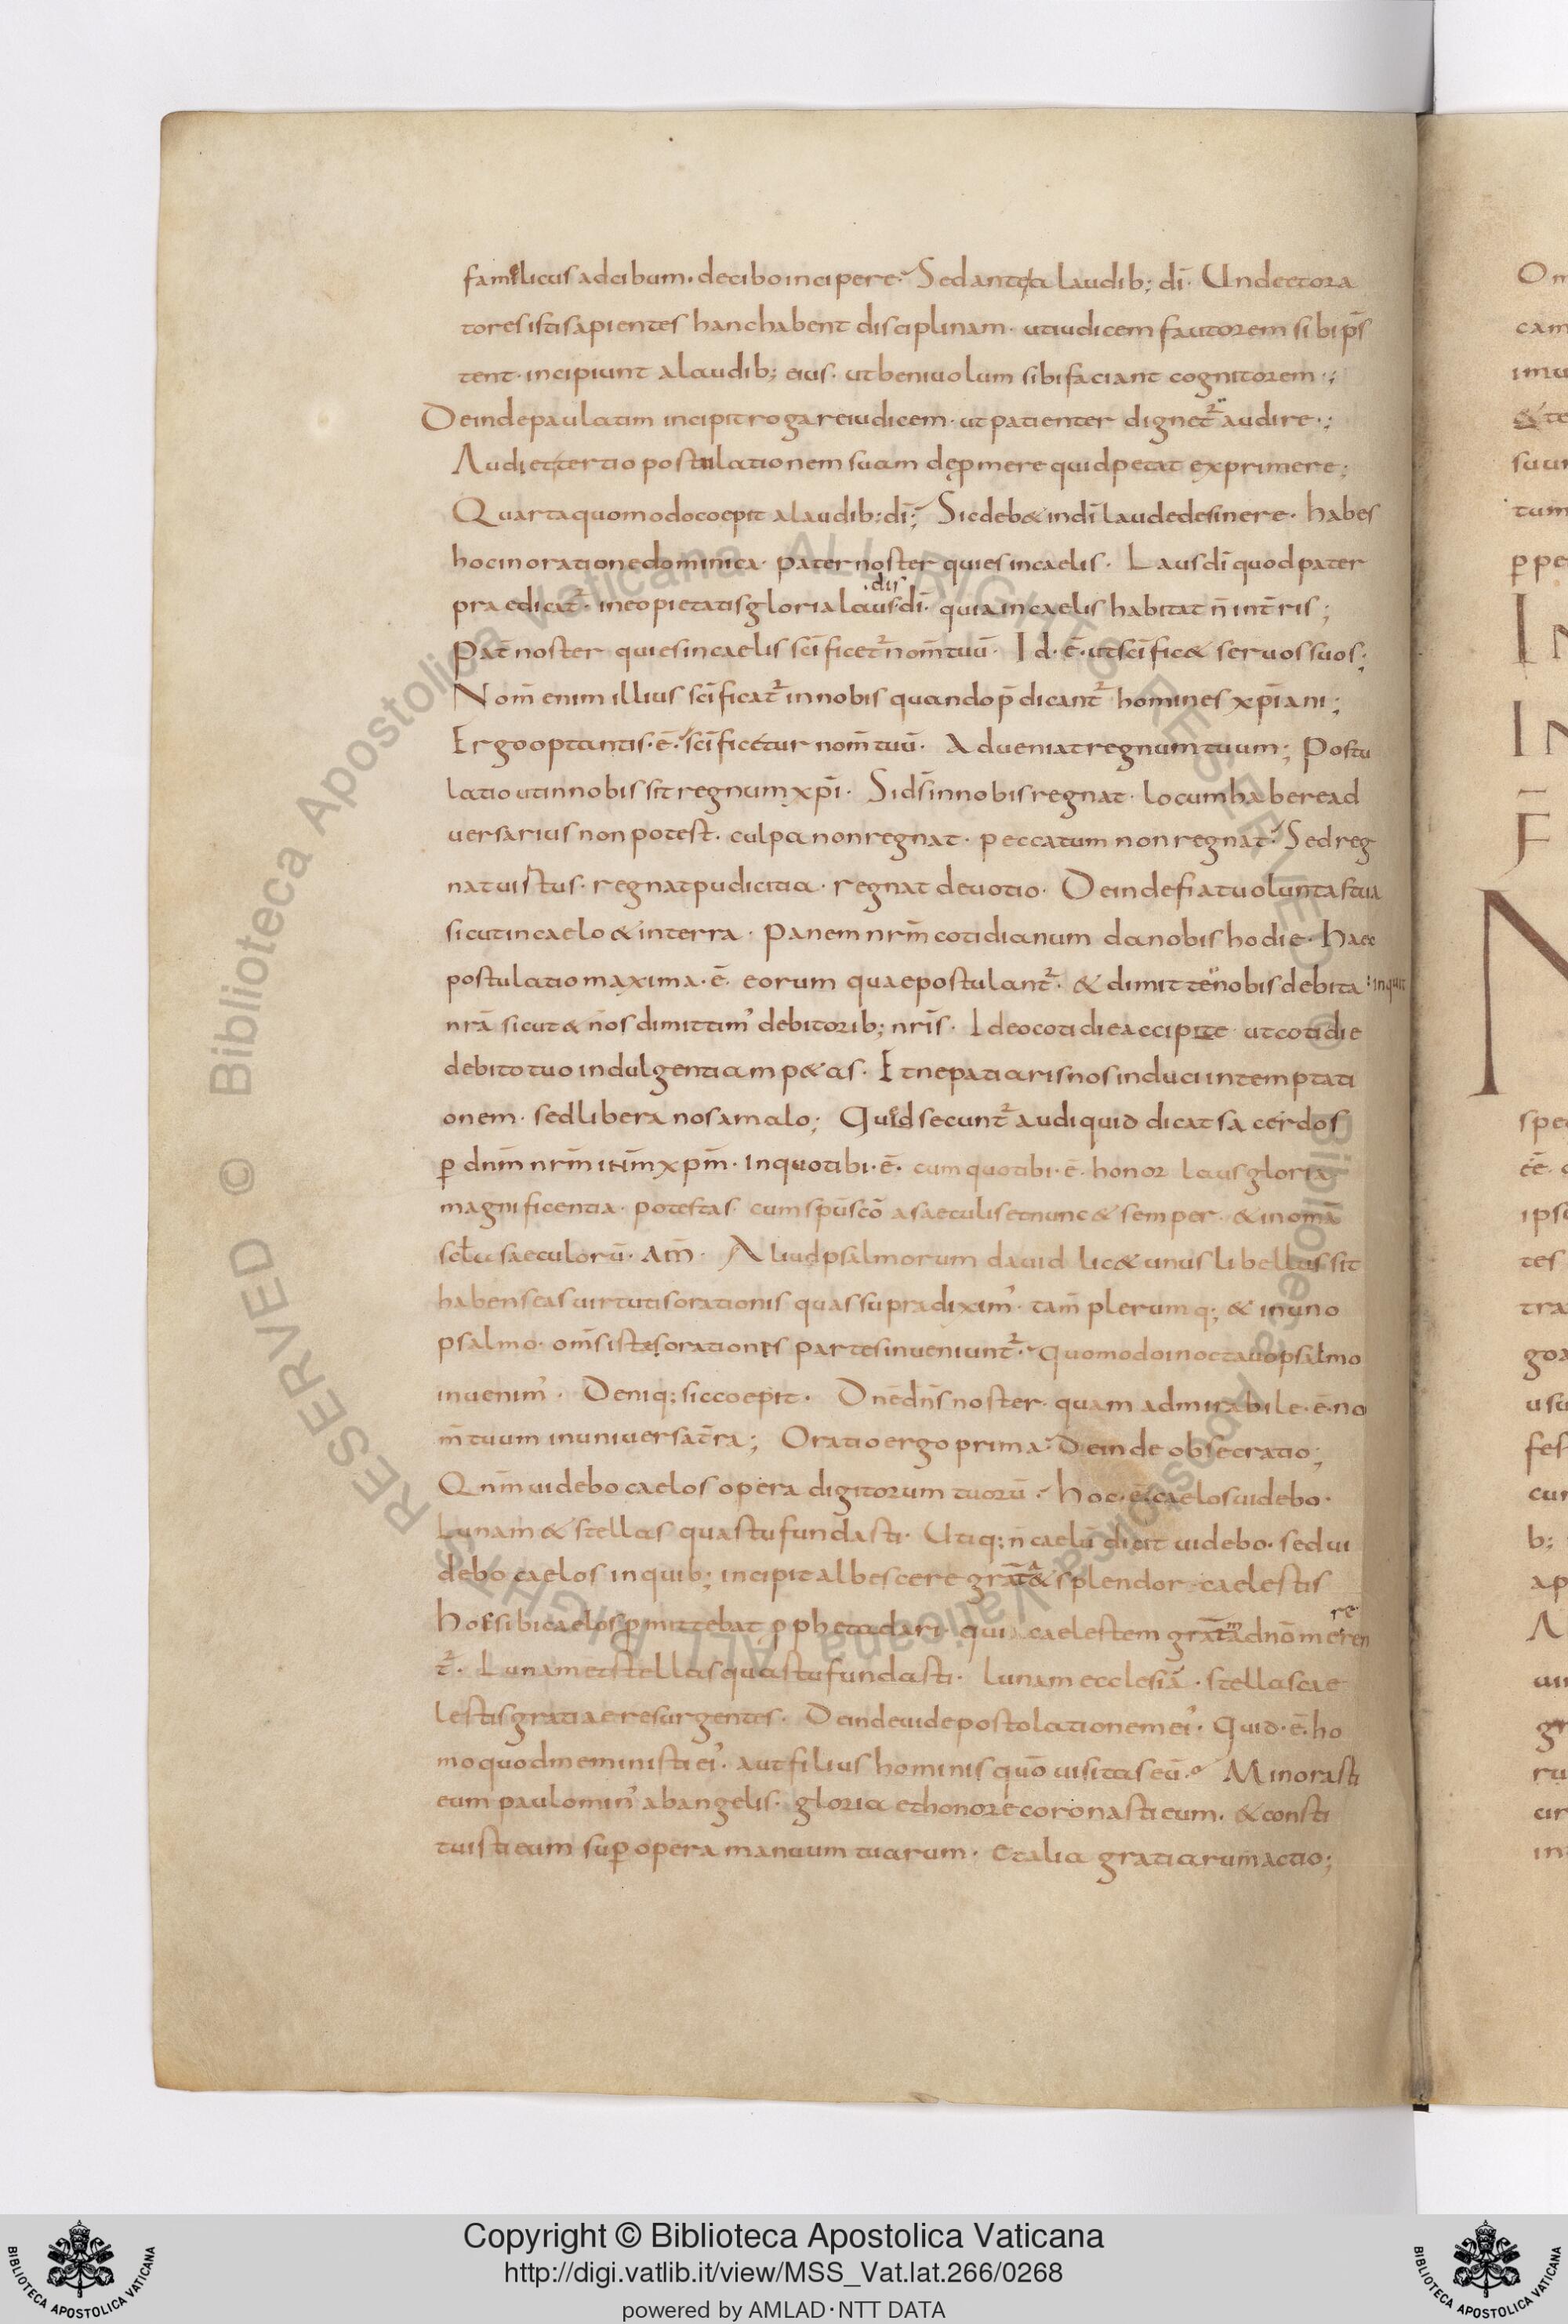 famelicus ad cibum · de cibo incipere · Sed antea a laudib; dī · Unde et ora
tores isti sapientes hanc habent disciplinam · ut iudicem fautorem sibi p̄s
tent · incipiunt a laudib; eius · ut beniuolum sibi faciant cognitorem ·;
Deinde paulatim incipit rogare iudicem · ut patienter dignet᷑ audire ·;
Audi et tertio postulationem suam depmere quid petat exprimere;
Quarta quomodo coepit a laudib; dī; Sic deb& in dī laude desinere · habes
hoc in oratione dominica · pater noster qui es in caelis · Laus dī quod pater
praedicat᷑ · in eo pietatis gloria laus · dī · quia in caelis habitat n̄ in t̄ris;
Pat̄ noster qui es in caelis sc̄ificet᷑ nom̄ tuū · Id · ē · ut sc̄ific& seruos suos;
Nom̄ enim illius sc̄ificat᷑ in nobis quando p̄dicant᷑ homines xp̄iani;
Ergo optantis · ē · sc̄ificetur nom̄ tuū · Adueniat regnum tuum; Postu
latio ut in nobis sit regnum xp̄i · Si dn̄s in nobis regnat · locum habere ad
uersarius non potest · culpa non regnat · peccatum non regnat · Sed reg
nat uistus · regnat pudicitia · regnat deuotio · Deinde fiat uoluntas tua
sicut in caelo & in terra · Panem nrm̄ cotidianum da nobis hodie · haec
postulatio maxima · ē · eorum quae postulant᷑ · & dimitte nobis debita : inquit
nrā sicut & nos dimittim' debitorib; nrīs · Ideo cotidie accipite ut cotidie
debito tuo indulgentiam p&as · Et ne patiaris nos induci in temptati
onem · sed libera nos a malo; Quid secunt᷑ audi quid dicat sacerdos
p dnm̄ nrm̄ ihm̄ xpm̄ · In quo tibi · ē · cum quo tibi · ē · honor laus gloria
magnificentia · potestas · cum spū scō a saeculis et nunc & semper · & in omā
scła saeculorū · am̄ · Aliud psalmorum dauid lic& unus libellus sit
habens eas uirtutis orationis quas supra diximˀ · tam̄ plerumq; & in uno
psalmo · om̄s istas orationes partes inueniunt᷑ · Quomodo in octauo psalmo
inuenimˀ · Deniq; sic coepit · Dnē dn̄s noster · quam admirabile · ē · no
m̄ tuum in uniuersa t̄ra; Oratio ergo prima · Deinde obsecratio;
Qnm̄ uidebo caelos opera digitorum tuorū · Hoc · ē · caelos uidebo ·
Lunam & stellas quas tu fundasti · Utiq; n̄ caelū dicit uidebo · sed ui
debo caelos in quib; incipit albescere grat̄a & splendor caelestis
hos sibi caelos pmittebat ppheta dari · qui caelestem grat̄m a dnō mereren
t᷑ · Lunam et stellas quas tu fundasti · Lunam ecclesiā · stellas cae
lestis gratiae resurgentes · Deinde uide postolationem eiˀ · Quid · ē · ho
mo quod memin isti eiˀ · aut filius hominis quō uisitas eū · Minorasti
eum paulominˀ ab angelis · gloria et honore coronasti eum · & consti
tuisti eum sup opera manuum tuarum · Et alia gratiarum actio;
Copyright © Biblioteca Apostolica Vaticana
http://digi.vatlib.it/view/MSS_Vat.lat.266/0268
powered by AMLAD·NTT DATA